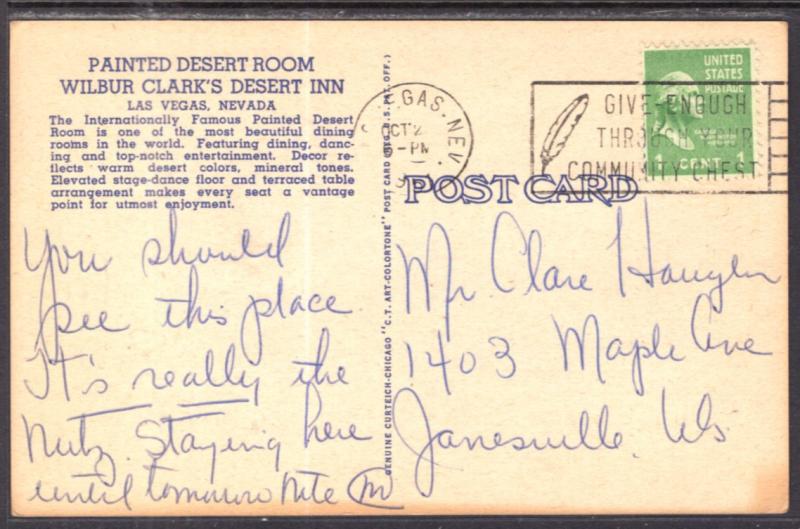 PAINTED DESERT ROOM
WILBUR CLARK'S DESERT INN
LAS VEGAS, NEVADA
The Internationally Famous Painted Desert
Room is one of the most beautiful dining
rooms in the world. Featuring dining, danc-
ing and top-notch entertainment. Decor re-
flects warm desert colors, mineral tones.
Elevated stage-dance floor and terraced table
arrangement makes every seat a vantage
point for utmost enjoyment.
You should
see this place.
It's really the
Nutz. Staying here
until tomorrow Nite
GENUINE CURTEICH-CHICAGO "C.T. ART-COLORTONE" POST CARD (REG. U.S. PAT. OFF.)
GAS. NEV.
OCT 2
PM
GIVE ENOUGH
THROUGH YOUR
COMMUNITY CHEST
UNITED
STATES
POSTAGE
1 CENT 1
POST CARD
Mr Clare
1403 Maple Ave
Janesville, Wis